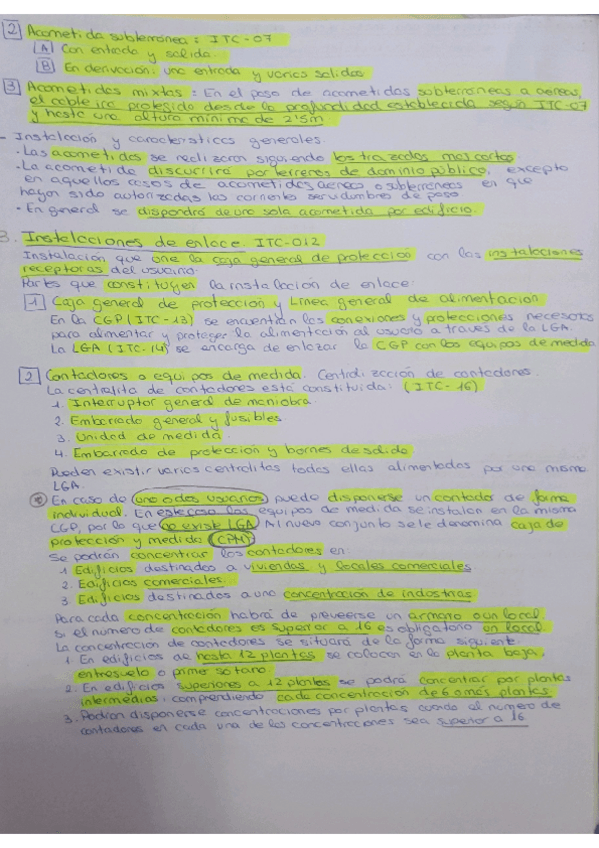 2 Acometida subterránea: ITC-07
A Con entrada y salida.
B En derivación: una entrada y varias salidas
3 Acometidas mixtas: En el paso de acometidas subterráneas a aéreas,
el cable irá protegido desde la profundidad establecida según ITC-07
y hasta una altura mínima de 2'5m
- Instalación y características generales.
· Las acometidas se realizaran siguiendo los trazados mas cortos.
· La acometida discurrirá por terrenos de dominio público, excepto
en aquellos casos de acometidas aereas o subterráneas en que
hayan sido autorizadas las corriente servidumbres de paso
· En general se dispondrá de una sola acometida por edificio.
B. Instalaciones de enlace. ITC-012
Instalación que une la caja general de protección con las instalaciones
receptoras del usuario.
Partes que constituyen la instalación de enlace:
1 Caja general de protección y Línea general de alimentación
En la CGP (ITC-13) se encuentran las conexiones y protecciones necesarias
para alimentar y proteger la alimentación al usuario a través de la LGA.
La LGA (ITC-14) se encarga de enlazar la CGP con los equipos de medida
2 Contadores o equipos de medida. Centralización de contadores.
La centralita de contadores está constituida: (ITC-16)
1. Interruptor general de maniobra.
2. Embarrado general y fusibles
3. Unidad de medida.
4. Embarrado de protección y bornes de salida
Pueden existir varias centralitas todas ellas alimentadas por una misma
LGA.
En caso de uno o dos usuarios puede disponerse un contador de forma
individual. En este caso los equipos de medida se instalan en la misma
CGP, por lo que no existe LGA. Al nuevo conjunto se le denomina caja de
protección y medida (CPM)
Se podrán concentrar los contadores en:
1 Edificios destinados a viviendas y locales comerciales
2. Edificios comerciales...
3 Edificios destinados a una concentración de industrias
Para cada concentración habrá de preveerse un armario o un local
si el numero de contadores es superior a 16 es obligatorio un local.
La concentración de contadores se situará de la forma siguiente:
1. En edificios de hasta 12 plantas se colocan en la planta baja,
entresuelo o primer sotano.
2. En edificios superiores a 12 plantas se podrá concentrar por plantas
intermedias, comprendiendo cada concentración de 6 o más plantas.
3. Podran disponerse concentraciones por plantas cuando el numero de
contadores en cada una de las concentraciones sea superior a 16